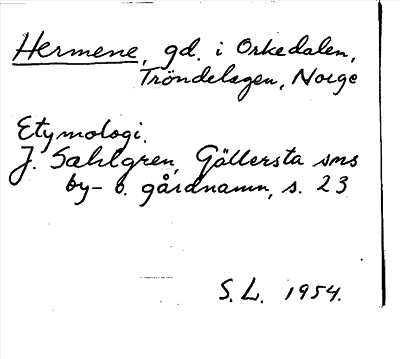 Hermene, gd. i Orkedalen,
Tröndelagen, Norge
Etymologi.
J. Sahlgren, Gällersta sns
by- o. gårdnamn, s. 23
S. L. 1954.